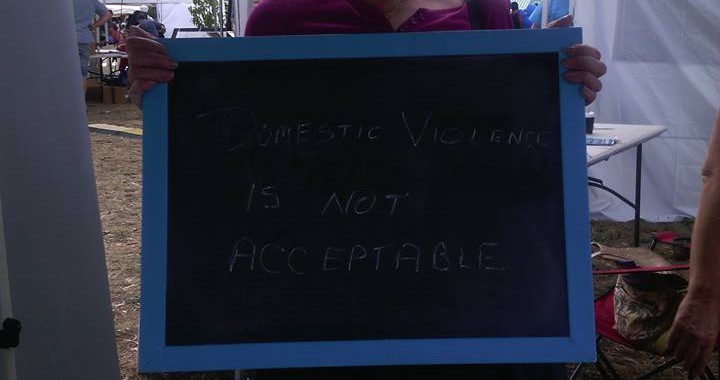 DOMESTIC VIOLENCE
IS NOT
ACCEPTABLE